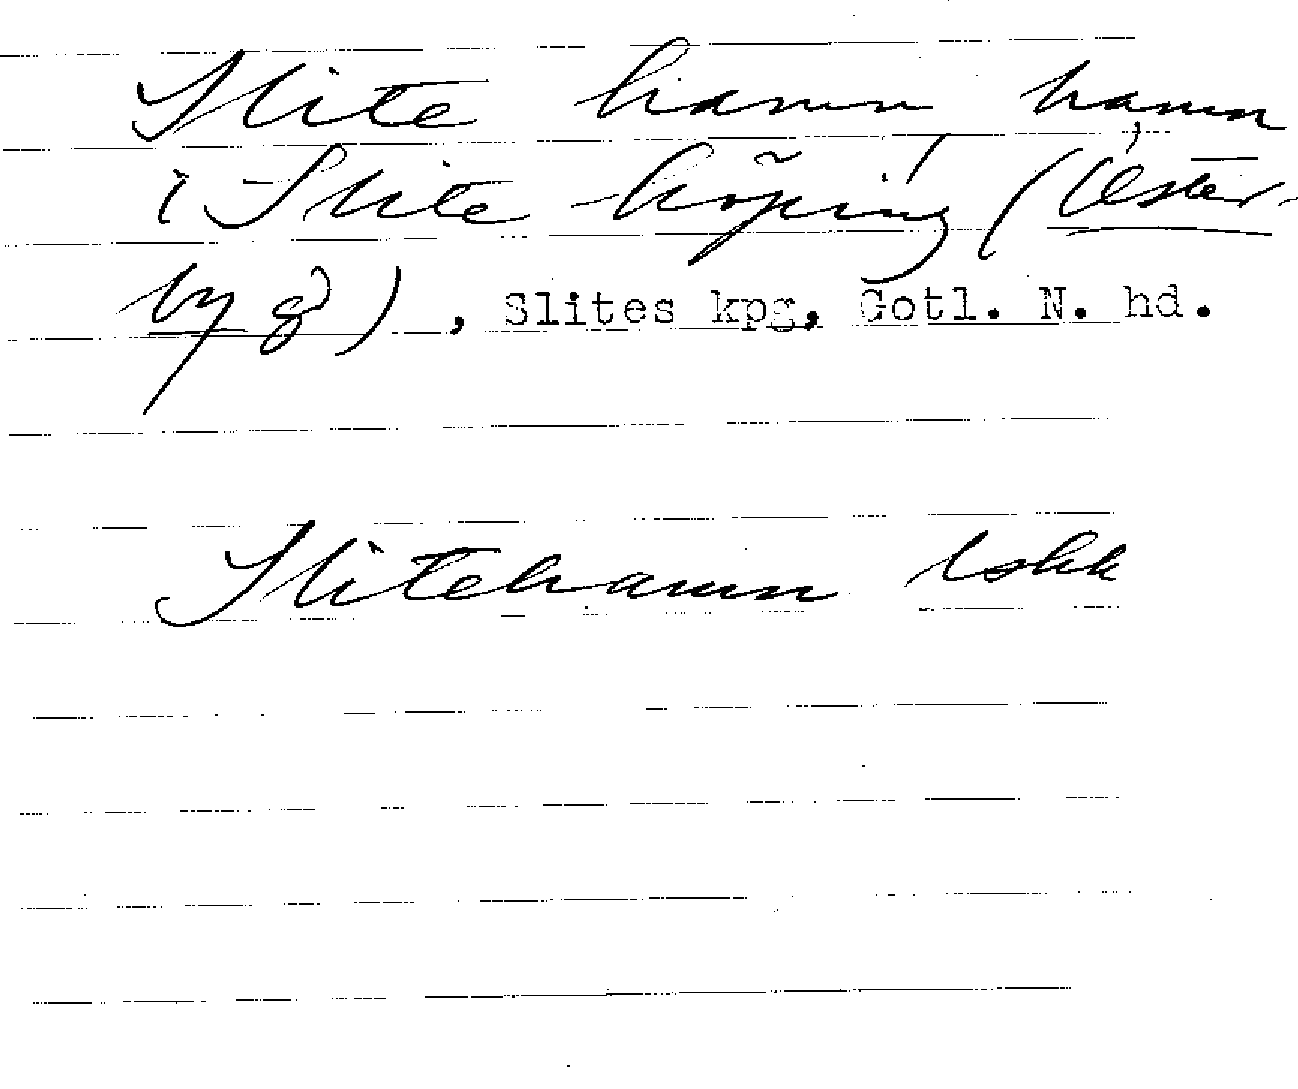 Slite hamn, hamn
i Slite köping (Öster-
by gd), Slites kpg, Gotl. N. hd.
Slitehamn